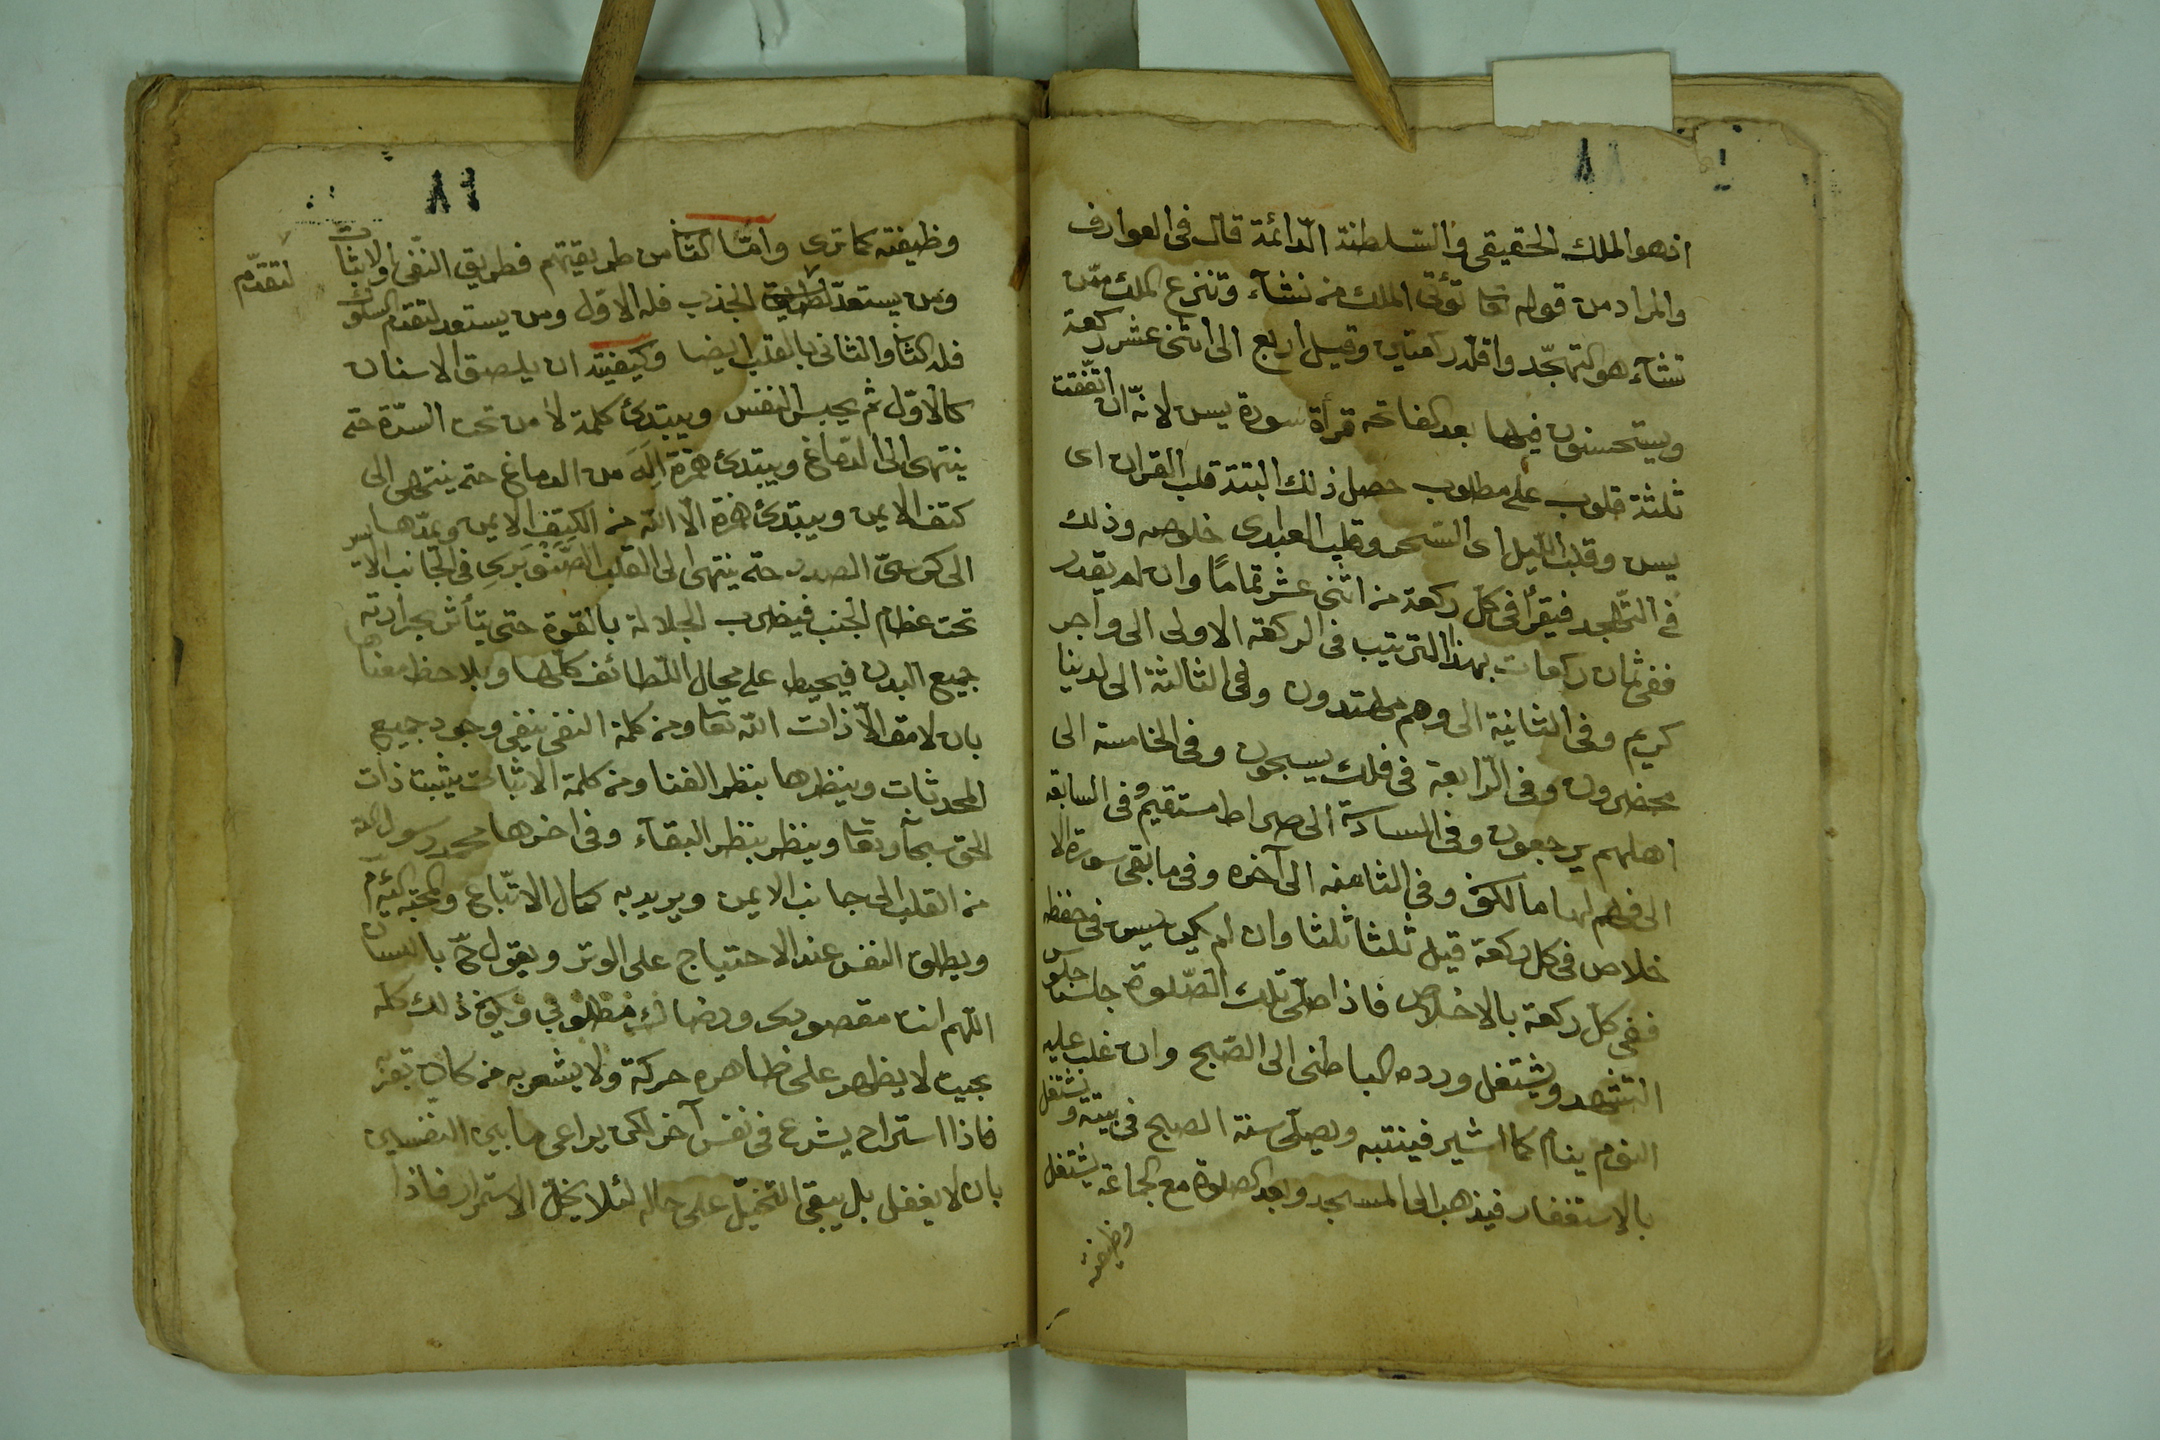 اذ هو الملك الحقيقى والسّلطنة الدّائمة قال فى العوارف
والمراد من قوله تعا تؤتى الملك من تشآء وتنزع الملك ممّن
تشآء هو التهجّد واقلّه ركعتين وقيل اربع الى اثنى عشر ركعة
ويستحسنون فيها بعد الفاتحه قرأة سورة يس لانّه ان اتّفقت
ثلثة قلوب على مطلوب حصل ذلك البتة قلب القران اى
يس وقلب اللّيل اى السّحر وقلب العبد اى خلوصه وذلك
فى التّهجد فيقرأ فى كلّ ركعة من اثنى عشر تمامًا وان لم يقدر
ففى ثمان ركعات بهذا الترتيب فى الركعة الاولى الى واجر
كريم وفى الثانية الى وهم مهتدون وفى الثالثة الى لدينا
محضرون وفى الرّابعة فى فلك يسبحون وفى الخامسة الى
اهلهم يرجعون وفى السادسة الى صراط مستقيم وفى السابعة
الى فهم لها مالكون وفى الثامنه الى آخره وفى ما بقى سورة الا
خلاص فى كل ركعة قيل ثلثا ثلثا وان لم يكن يس فى حفظه
ففى كلّ ركعة بالاخلاص فاذا صلّى تلك الصّلوة جلس جلوس
التشهد ويشتغل ورده الباطنى الى الصّبح وان غلب عليه
النوم ينام كما اشير فينتبه ويصلّى سنة الصبح فى بيته ويشتغل
بالاستغفار فيذهب الى المسجد وبعد الصلوة مع الجماعة يشتغل
وظيفته
٨١
وظيفته كما ترى وامّا الثا من طريقتهم فطريق النّفى والاثبات
لتقدّم
ومن يستعدّ الجذب فله الاوّل ومن يستعد لتقدم السلوك
فله الثا والثانى بالقلب ايضا وكيفيّته ان يلصق الاسنان
كالاوّل ثم يحبس النفس ويبتدئ كلمة لا من تحت السرّة حتى
ينتهى الى الدماغ ويبتدئ همزة اله من الدماغ حتى ينتهى الى
كتف الايمن ويبتدئ همزة الّا اللّه من الكتف الايمن ويمدّها
الى كرسىّ الصدر حتى ينتهى الى القلب الصَّنَوبَرىِ فى الجانب الايسر
تحت عظام الجنب فيضرب الجلالة بالقوة حتى يتأثر بحرارته
جميع البدن فيحيط على محال اللّطائف كلّها ويلاحظ معناها
بان لا مق الّا ذات اللّه تعا ومن كلمة النفى ينفى وجود جميع
المحدثات وينظرها بنظر الفنا ومن كلمة الاثبات يثبت ذات
الحق سبحا وتعا وينظر بنظر البقآء وفى اخرها محمد رسول اللّه
من القلب الى جانب الايمن ويريد به كمال الاتّباع والمحبّة
ويطلق النفس عند الاحتياج على الوتر ويقول ح باللسان
اللّهم انت مقصودى ورضاك مطلوبى ويكون ذلك كلّه
بحيث لا يظهر على ظاهره حركة ولا يشعر به من كان بقربه
فاذا استراح يشرع فى نفس آخر لكن يراعى ما بين النفسين
بان لا يغفل بل يبقى التخيّل على حاله لئلا يخلّ الاستمرار فاذا